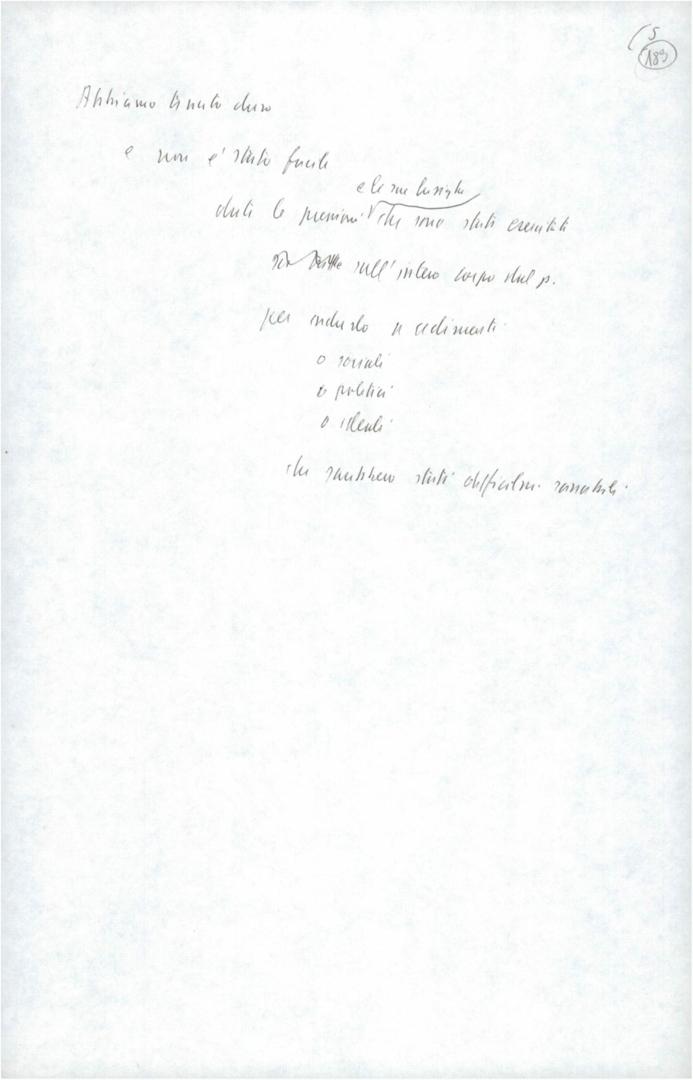 5
189
Abbiamo tenuto duro
e non e' stato facile
e le
date le pressioni che sono stati esercitati
sull'intero corpo del p.
per indurlo a cedimenti
o sociali
o politici
o ideali
che sarebbero stati difficilm. sanabili.